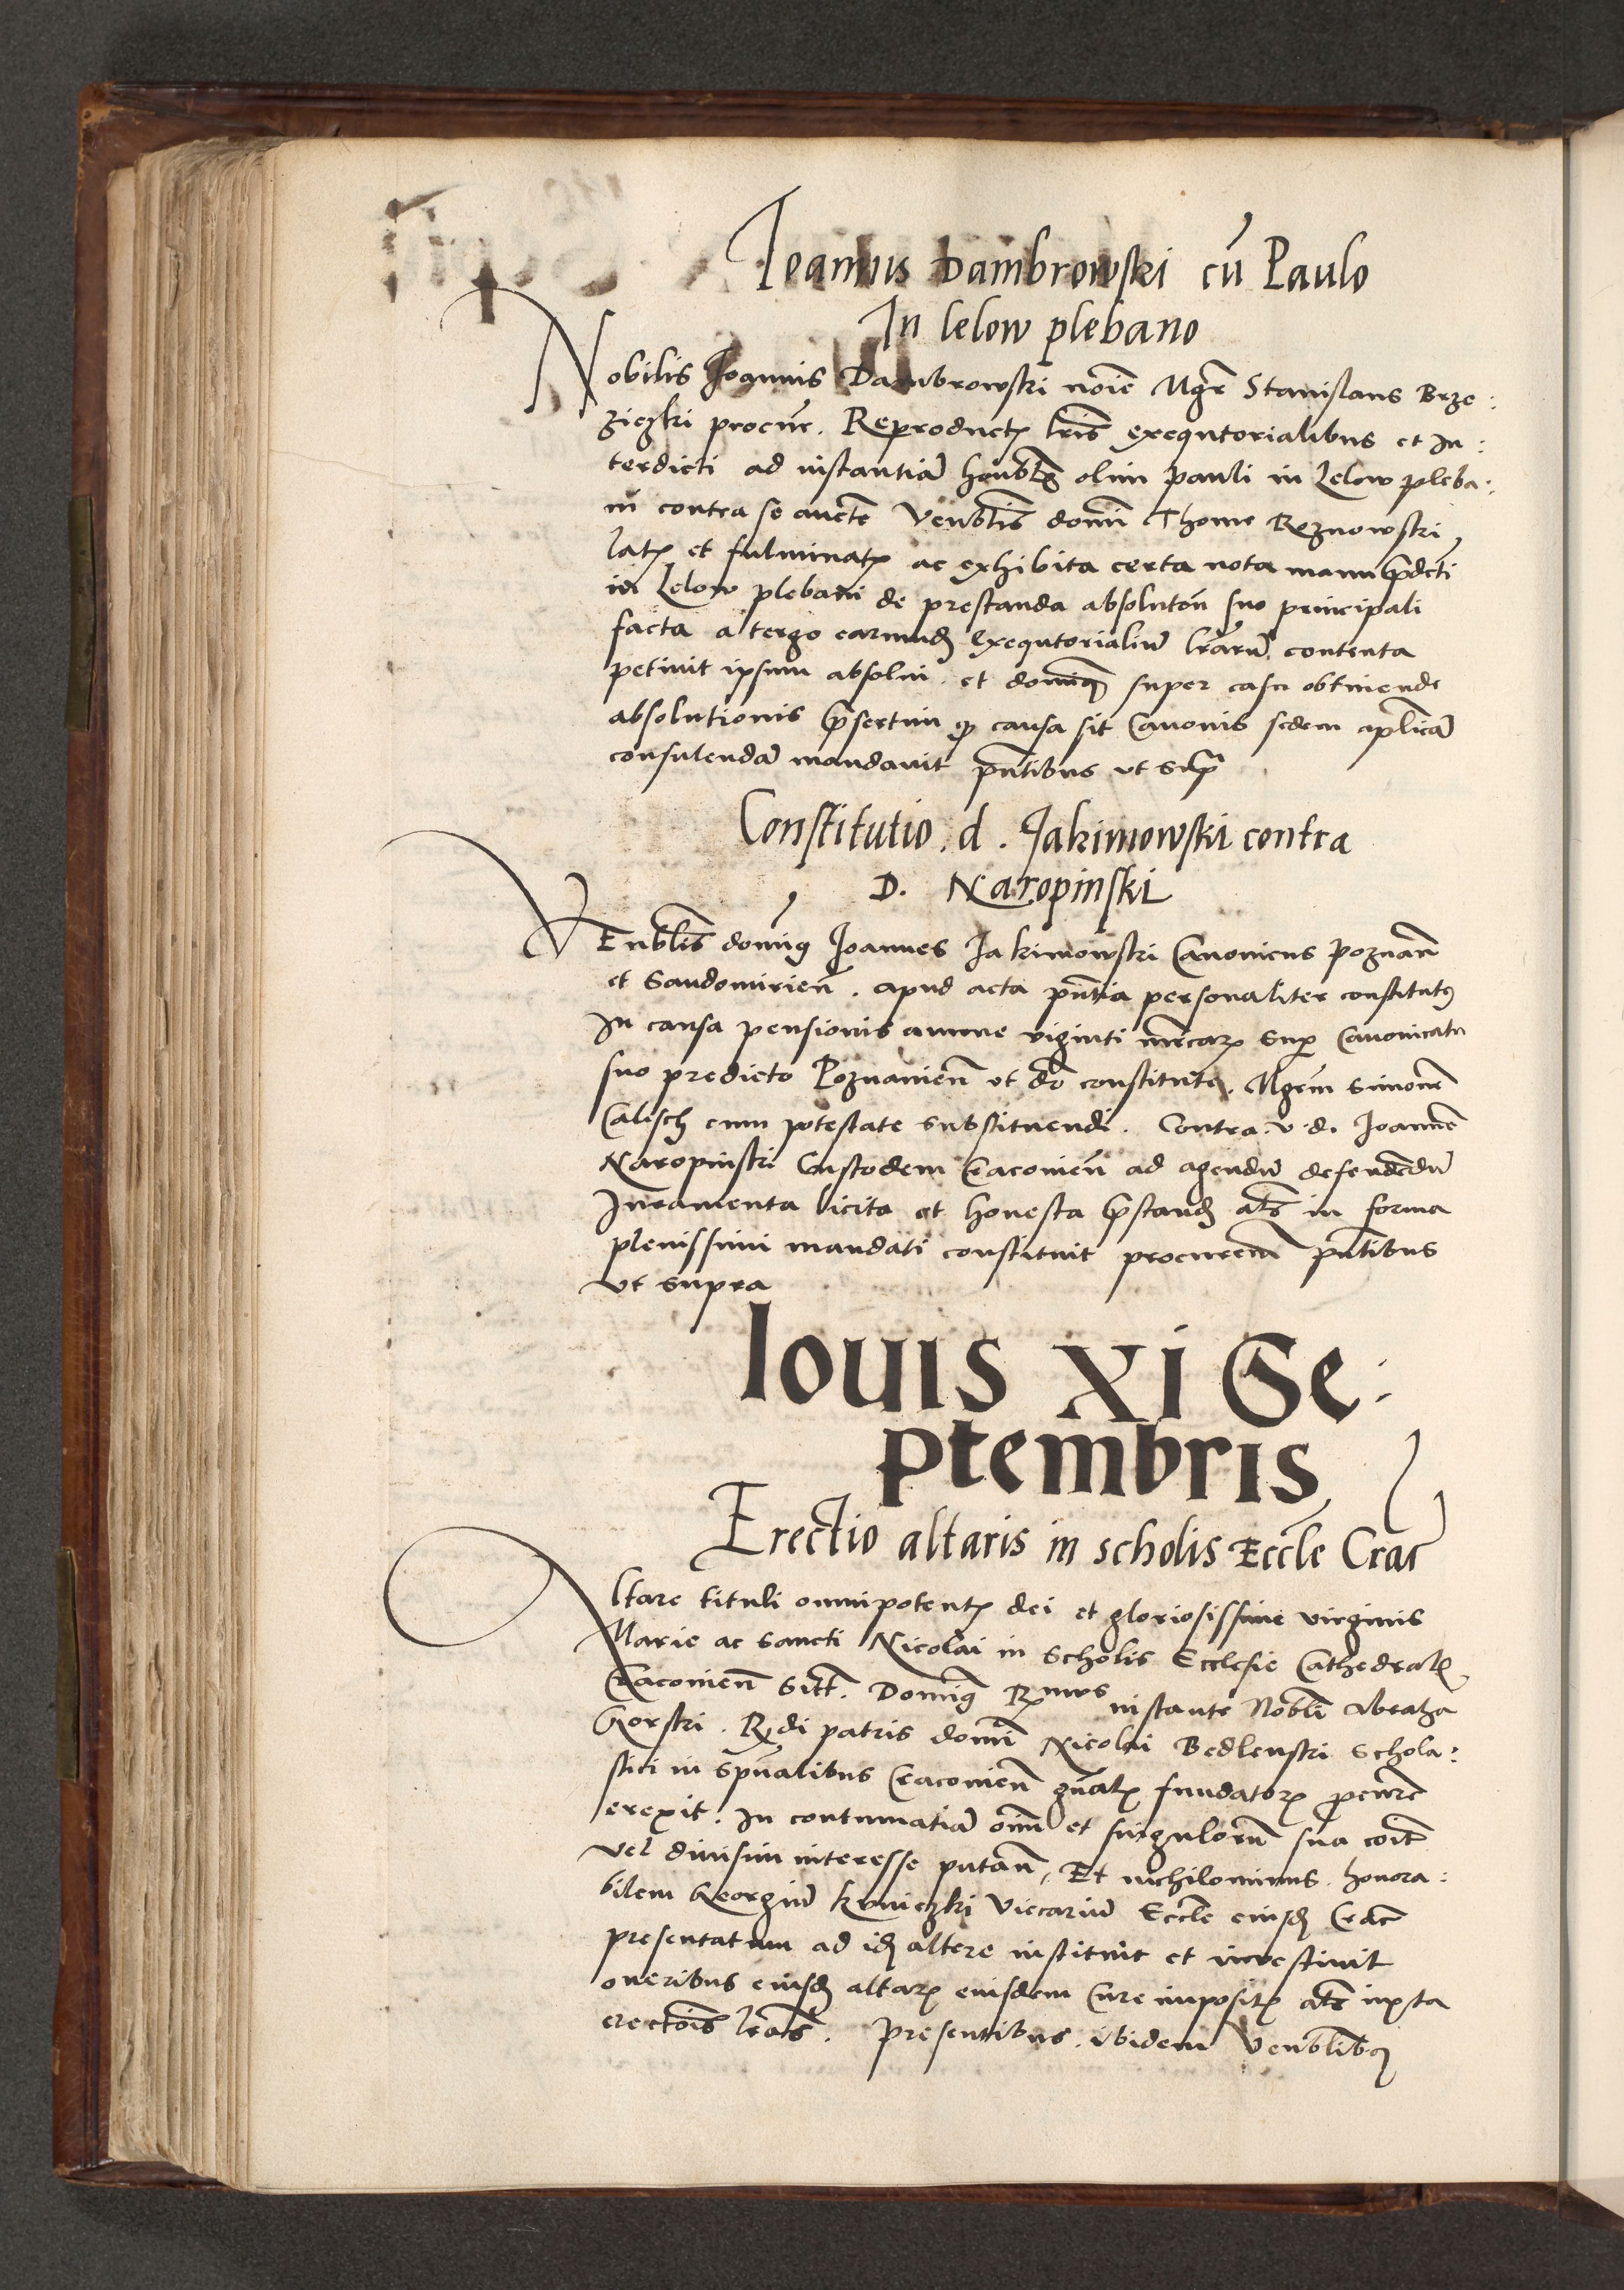 Joannis Dambrowski cū Paulo
In lelow plebano
Nobilis Joannis Dambrowski noīe Mgr Stanislaus Brze:
ziczki procur̄. Reproductꝭ lr̄is exequtorialibus et In:
terdicti ad instantiā honbꝉꝭ olim pauli in Lelow pleba:
ni contra se aucte Venblis domī Thome Reznowski
latꝭ et fulminatꝭ ac exhibita certa nota manu p̄dcti
in Lelow plebani de prestanda absolutōn suo principali
facta a tergo earundꝫ Exequtorialiū lr̄arū contenta
petiuit ipsum absolui. et dominꝰ super casu obtinende
absolutionis p̄sertim ꝙ causa sit Canonis sedem aplicā
consulendā mandauit pn̄tibus ut supᷓ
Constitutio . d . Jakimowski contra
D. Naropinski
VEnblis dominꝰ Joannes Jakimowski Canonicus Poznan̄
et Sandomirien̄. apud acta pn̄tia personaliter constitutꝰ
In causa pensionis annue viginti mrcarꝝ Suꝑ Canonicatu
suo predicto Poznanien̄ ut dr̄ constitute. Mgrm Simonē
Calisch cum potestate substituendi. Contra . v . d . Joannē
Naropinski Custodem Cracouien̄ ad agendū defendēdū
Iuramenta licita et honesta p̄standꝫ ac̄ in forma
plenissimi mandati constituit procurem̄ pn̄tibus
ut supra
Iouis XI Se:
ptembris
Erectio altaris in scholis Eccle Crac̄
Altare tituli omnipotentꝭ dei et gloriosissime virginis
Marie ac Sancti Nicolai in Scholis Ecclesie Cathedralꝭ
Cracouien̄ Sitt. Dominꝰ Rmus instante Nobli Abraha
Gorski . Rdi patris domī Nicolai Bedlenski Schola:
stici in Spūalibus Cracouien̄ gn̄alꝭ fundatorꝭ procure
erexit. In contumatiā oīm et singulorū sua coīt
vel diuisim interesse putan̄. Et nichilominus. honora:
bilem Georgiū Kunieczki Viccariū Eccle eiusdꝫ Crac̄
presentatum ad idꝫ altare instituit et inuestiuit
oneribus eiusdꝫ altarꝭ eiusdem Cure impositꝭ ac̄ iuxta
erectōis lr̄as. Presentibus . ibidem Venblibꝰ